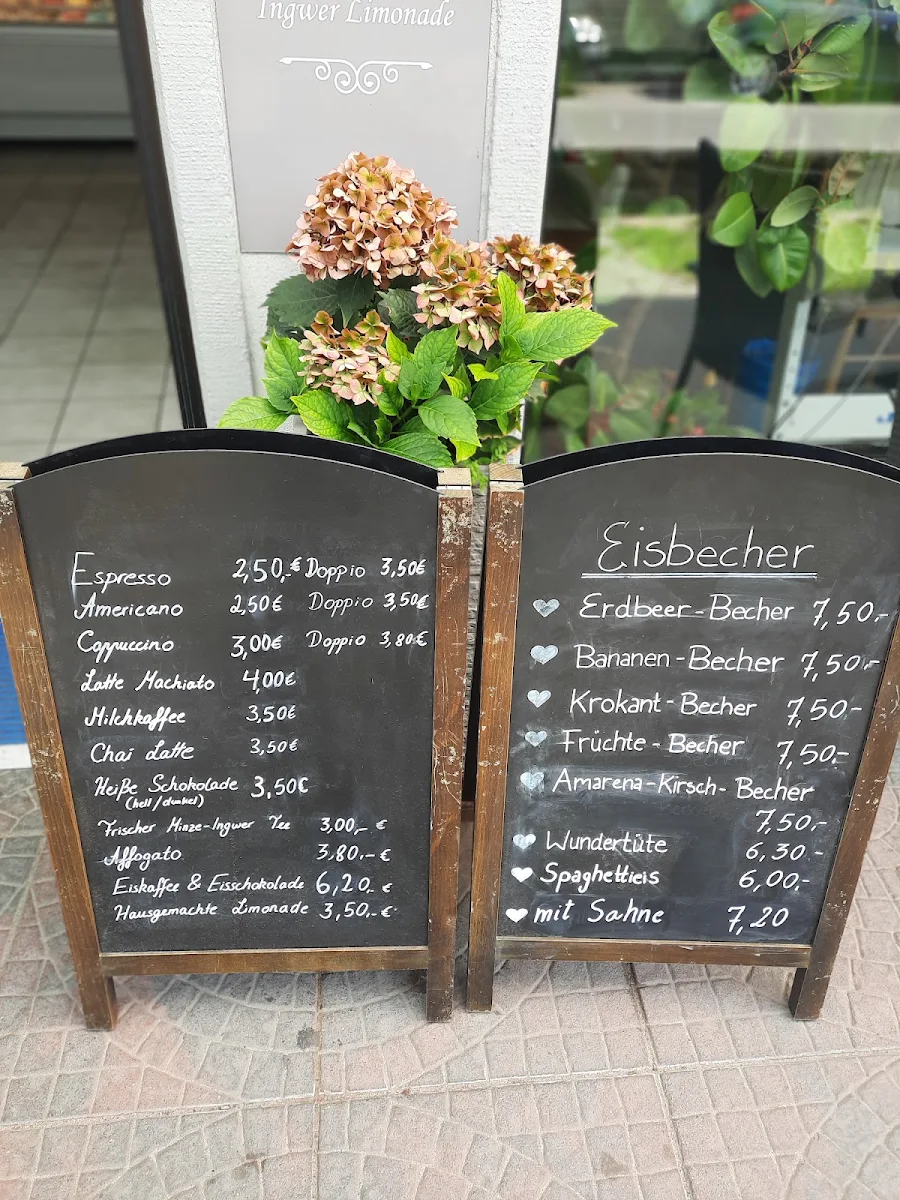 Ingwer Limonade
Espresso 2,50,-€ Doppio 3,50€
Americano 2,50€ Doppio 3,50€
Cappuccino 3,00€ Doppio 3,80€
Latte Machiato 4,00€
Milchkaffee 3,50€
Chai Latte 3,50€
Heiße Schokolade 3,50€
(hell/dunkel)
Frischer Minze-Ingwer Tee 3,00,- €
Affogato 3,80,-€
Eiskaffee & Eisschokolade 6,20,- €
Hausgemachte Limonade 3,50,-€
Eisbecher
Erdbeer-Becher 7,50,-
Bananen-Becher 7,50,-
Krokant-Becher 7,50-
Früchte-Becher 7,50,-
Amarena-Kirsch-Becher
7,50,-
Wundertüte 6,30-
Spaghettieis 6,00,-
mit Sahne 7,20